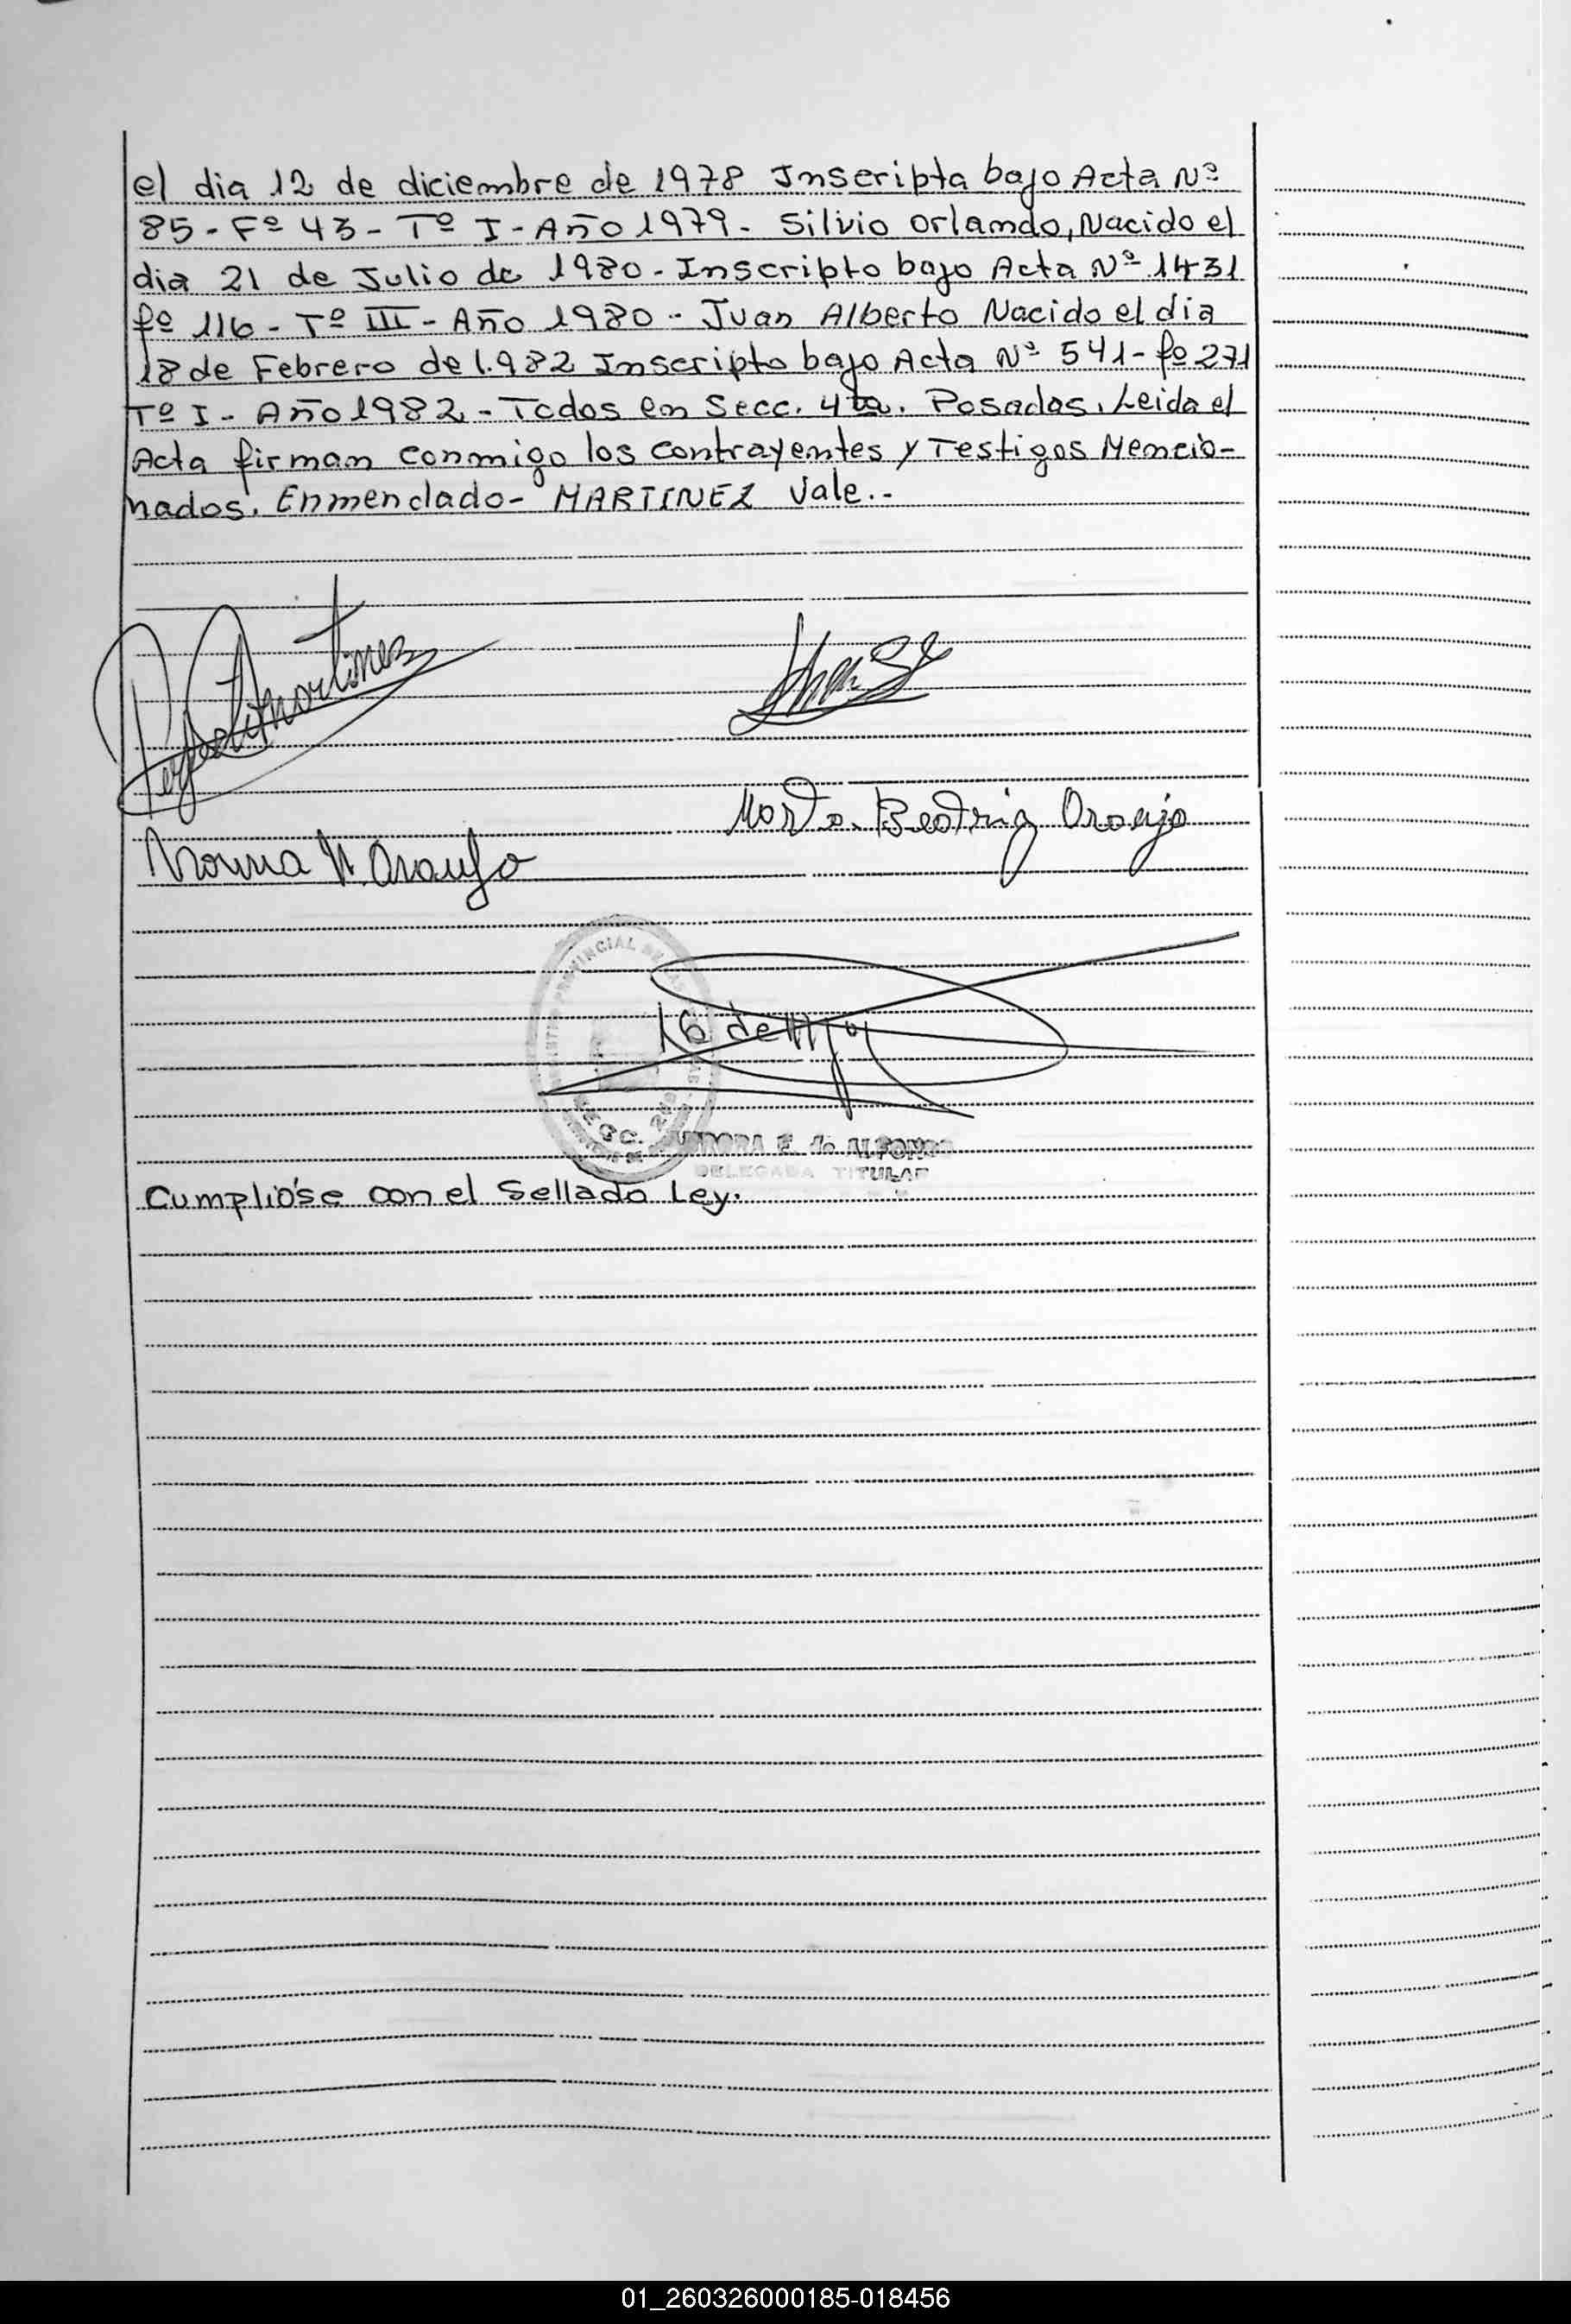 el dia 12 de diciembre de 1978 Inscripta bajo Acta Nº
85 - Fº 43 - Tº I - Año 1979 - Silvio Orlando, Nacido el
dia 21 de Julio de 1980 - Inscripto bajo Acta Nº 1431
fº 116 - Tº III - Año 1980 - Juan Alberto Nacido el dia
18 de Febrero de 1.982 Inscripto bajo Acta Nº 541 - fº 271
Tº I - Año 1982 - Todos en Secc. 4ta. Posadas. Leida el
Acta firman conmigo los contrayentes y Testigos Mencio-
nados. Enmendado - MARTINEZ Vale.-
Martinez
Marta Beatriz Araujo
Norma N. Araujo
PROVINCIAL DE LAS
SECC.
AURORA E. de ALFONSO
DELEGADA TITULAR
Cumplióse con el Sellado Ley.
01_260326000185-018456